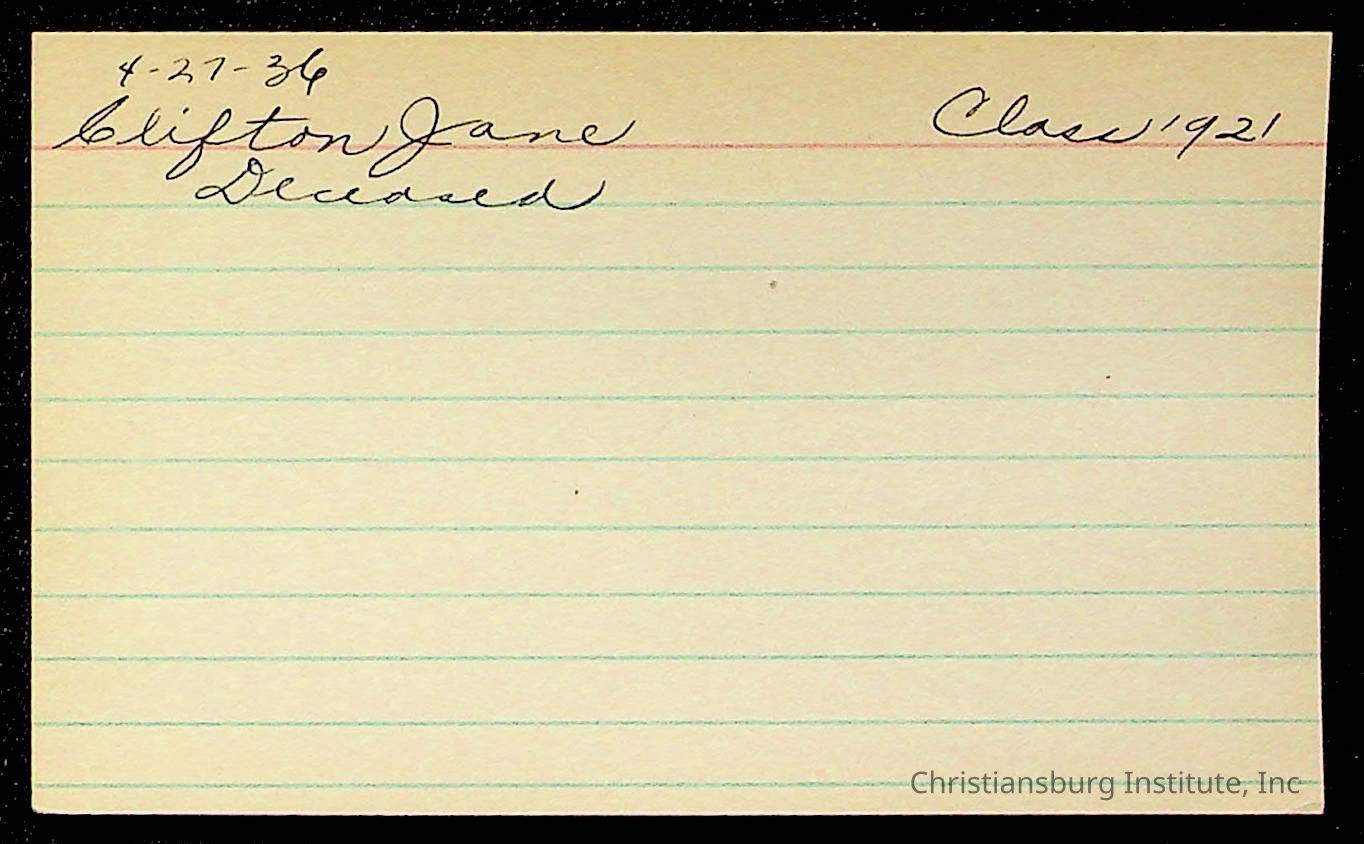 4-27-36
Clifton Jane Class 1921
Deceased
Christiansburg Institute, Inc